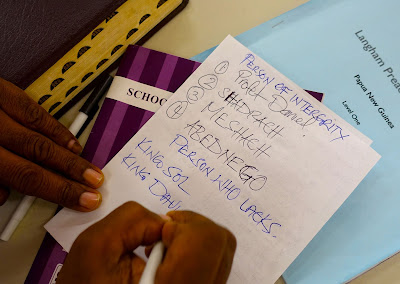 PERSON OF INTEGRITY
① Profet Daniel.
② SHADRACH
③ MESHACH
④ ABEDNEGO
PERSON WHO LACKS.
KING SOL
KING DAVI
SCHOO
Langham Preac
Papua New Guinea
Level One